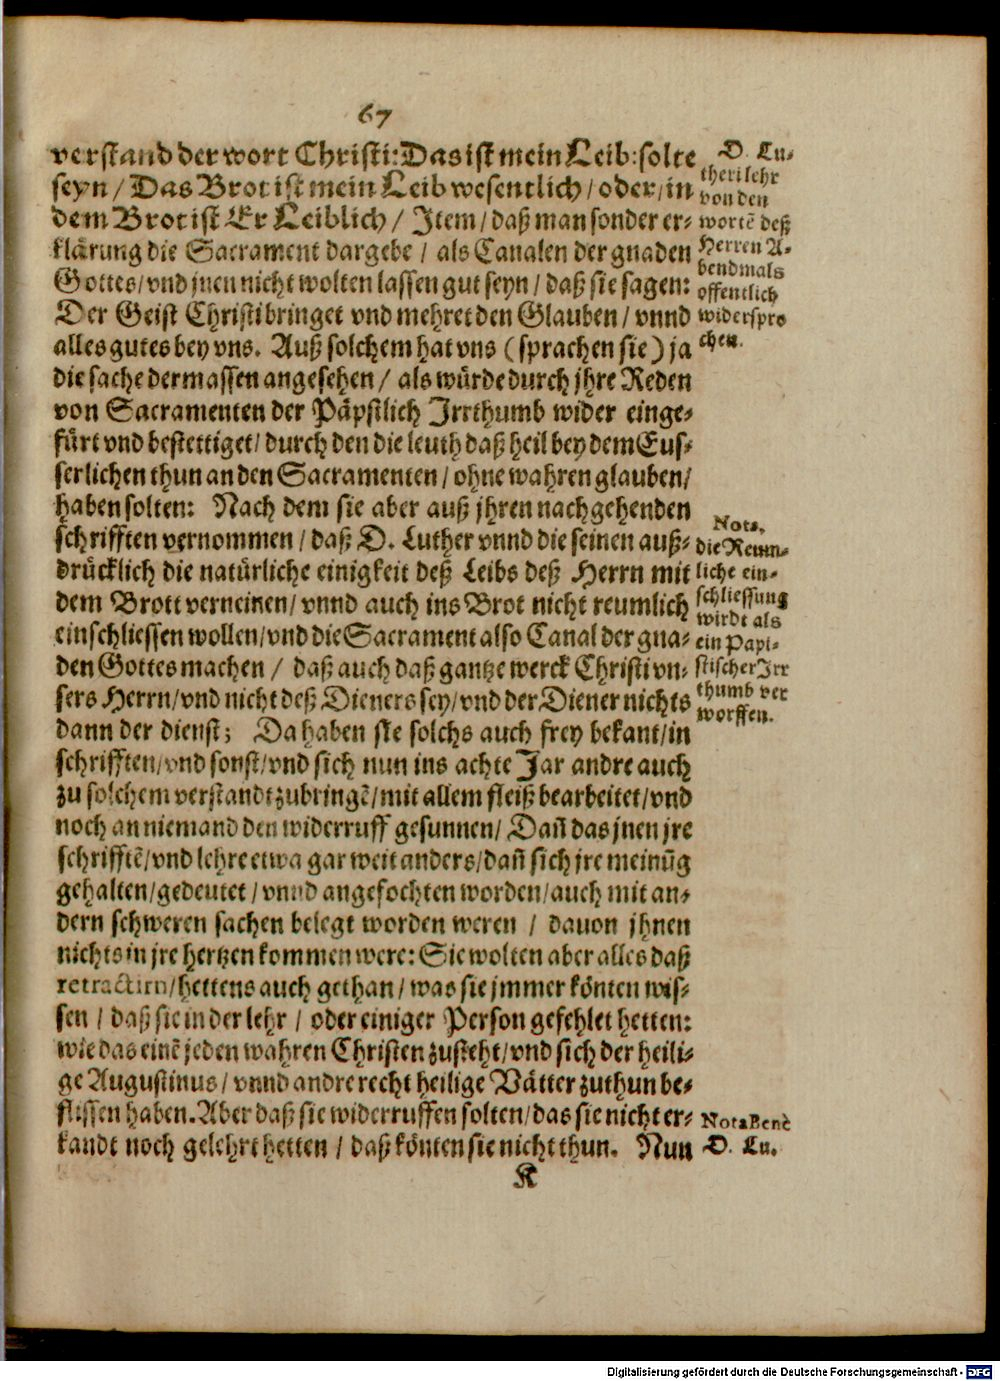 67
verstand der wort Christi: Das ist mein Leib: solte
seyn / Das Brot ist mein Leib wesentlich / oder / in
dem Brot ist Er Leiblich / Item / daß man sonder er-
klärung die Sacrament dargebe / als Canalen der gnaden
Gottes / vnd jnen nicht wolten lassen gut seyn / daß sie sagen:
Der Geist Christi bringet vnd mehret den Glauben / vnnd
alles gutes bey vns. Auß solchem hat vns (sprachen sie) ja
die sache dermassen angesehen / als würde durch jhre Reden
von Sacramenten der Päpstlich Irrthumb wider einge-
fürt vnd bestettiget / durch den die leuth daß heil bey dem Eus-
serlichen thun an den Sacramenten / ohne wahren glauben /
haben solten: Nach dem sie aber auß jhren nachgehenden
schrifften vernommen / daß D. Luther vnnd die seinen auß-
drücklich die natürliche einigkeit deß Leibs deß Herrn mit
dem Brott verneinen / vnnd auch ins Brot nicht reumlich
einschliessen wollen / vnd die Sacrament also Canal der gna-
den Gottes machen / daß auch daß gantze werck Christi vn-
sers Herrn / vnd nicht deß Dieners sey / vnd der Diener nichts
dann der dienst; Da haben sie solchs auch frey bekant / in
schrifften / vnd sonst / vnd sich nun ins achte Jar andre auch
zu solchem verstandt zubringē / mit allem fleiß bearbeitet / vnd
noch an niemand den widerruff gesunnen / Dañ das jnen jre
schrifftē / vnd lehre etwa gar weit anders / dañ sich jre meinūg
gehalten / gedeutet / vnnd angefochten worden / auch mit an-
dern schweren sachen belegt worden weren / dauon jhnen
nichts in jre hertzen kommen were: Sie wolten aber alles daß
retractirn / hettens auch gethan / was sie jmmer könten wis-
sen / daß sie in der lehr / oder einiger Person gefehlet hetten:
wie das einē jeden wahren Christen zusteht / vnd sich der heili-
ge Augustinus / vnnd andre recht heilige Vätter zuthun be-
flissen haben. Aber daß sie widerruffen solten / das sie nicht er-
kandt noch gelehrt hetten / daß könten sie nicht thun. Nun
K
D. Lu-
theri lehr
von den
wortē deß
Herren A-
bendmals
offentlich
widerspro
chen.
Nota,
die Reum-
liche ein-
schliessung
wirdt als
ein Papi-
stischer Irr
thumb ver
worffen.
Nota Benè
D. Lu.
Digitalisierung gefördert durch die Deutsche Forschungsgemeinschaft - DFG